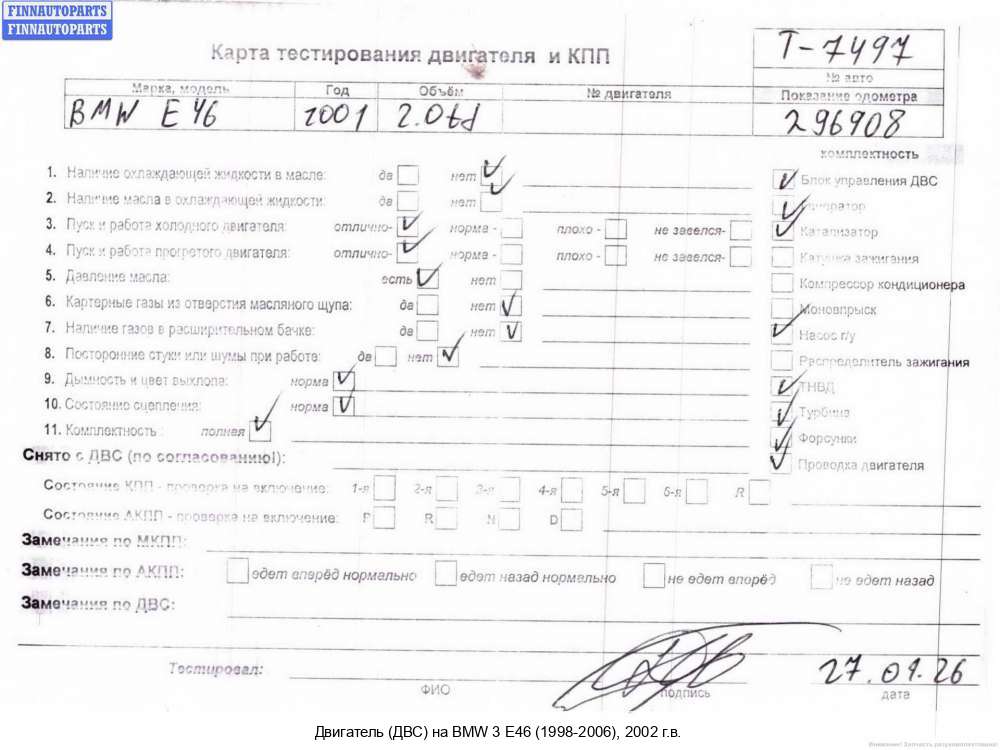 FINNAUTOPARTS
FINNAUTOPARTS
Карта тестирования двигателя и КПП
T-7497
№ авто
Марка, модель Год Объём № двигателя Показание одометра
BMW E46 2001 2.0td 296908
комплектность
1. Наличие охлаждающей жидкости в масле: да нет
Блок управления ДВС
2. Наличие масла в охлаждающей жидкости: да нет
Генератор
3. Пуск и работа холодного двигателя: отлично- норма - плохо - не завелся-
Катализатор
4. Пуск и работа прогретого двигателя: отлично- норма - плохо - не завелся-
Катушка зажигания
5. Давление масла: есть нет
Компрессор кондиционера
6. Картерные газы из отверстия масляного щупа: да нет
Моновпрыск
7. Наличие газов в расширительном бачке: да нет
Насос г/у
8. Посторонние стуки или шумы при работе: да нет
Распределитель зажигания
9. Дымность и цвет выхлопа: норма
ТНВД
10. Состояние сцепления: норма
Турбина
11. Комплектность : полная
Форсунки
Снято с ДВС (по согласованию!):
Проводка двигателя
Состояние КПП - проверка на включение: 1-я 2-я 3-я 4-я 5-я 6-я R
Состояние АКПП - проверка на включение: P R N D
Замечания по МКПП:
Замечания по АКПП: едет вперёд нормально едет назад нормально не едет вперёд не едет назад
Замечания по ДВС:
Тестировал:
27.01.26
ФИО подпись дата
Двигатель (ДВС) на BMW 3 E46 (1998-2006), 2002 г.в.